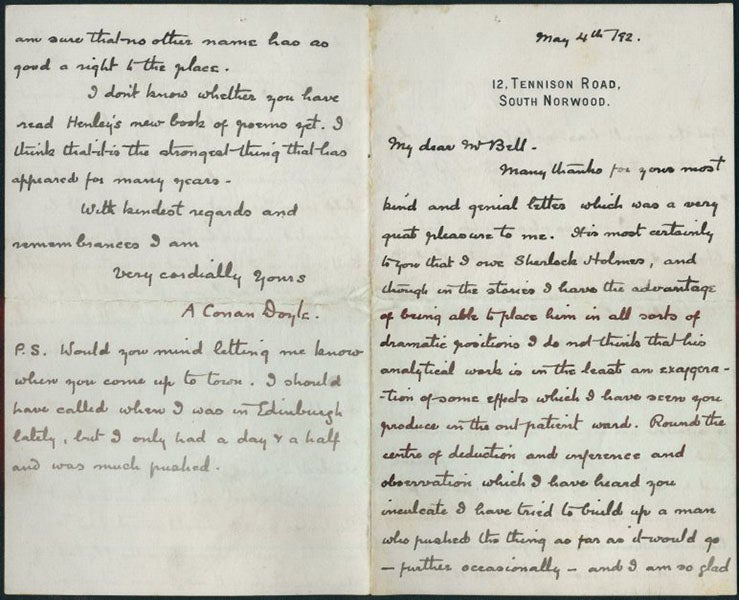 May 4th /92.
12, TENNISON ROAD,
SOUTH NORWOOD.
My dear Mr Bell -
Many thanks for your most
kind and genial letter which was a very
great pleasure to me. It is most certainly
to you that I owe Sherlock Holmes, and
though in the stories I have the advantage
of being able to place him in all sorts of
dramatic positions I do not think that his
analytical work is in the least an exaggera-
-tion of some effects which I have seen you
produce in the out-patient ward. Round the
centre of deduction and inference and
observation which I have heard you
inculcate I have tried to build up a man
who pushed the thing as far as it would go
- further occasionally - and I am so glad
am sure that no other name has as
good a right to the place.
I don't know whether you have
read Henley's new book of poems yet. I
think that it is the strongest thing that has
appeared for many years -
With kindest regards and
remembrances I am
Very cordially Yours
A Conan Doyle.
P.S. Would you mind letting me know
when you come up to town. I should
have called when I was in Edinburgh
lately, but I only had a day & a half
and was much pushed.